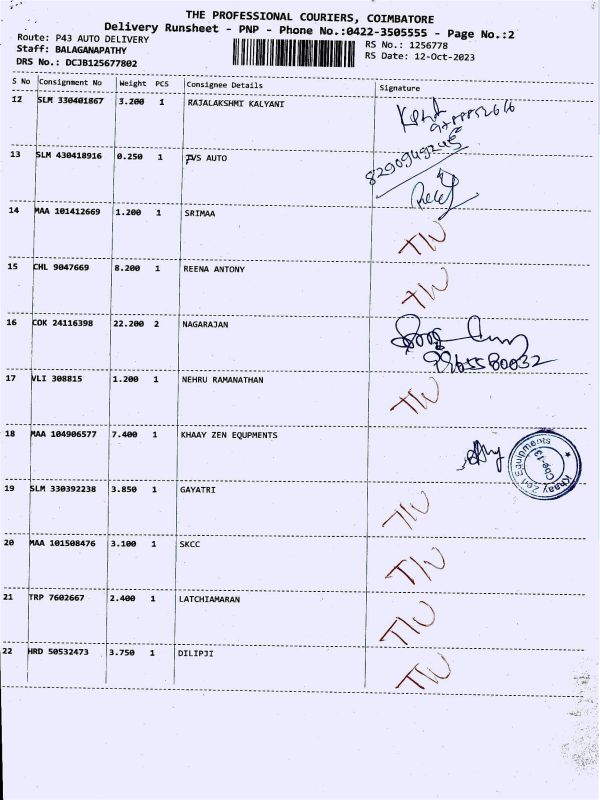 THE PROFESSIONAL COURIERS, COIMBATORE
Delivery Runsheet - PNP - Phone No.:0422-3505555 - Page No.:2
Route: P43 AUTO DELIVERY
Staff: BALAGANAPATHY
DRS No.: DCJB125677802
RS No.: 1256778
RS Date: 12-Oct-2023
S No Consignment No Weight PCS Consignee Details Signature
12 SLM 330401867 3.200 1 RAJALAKSHMI KALYANI
13 SLM 430418916 0.250 1 TVS AUTO 8290949245
14 MAA 101412669 1.200 1 SRIMAA T/W
15 CHL 9047669 8.200 1 REENA ANTONY T/W
16 COK 24116398 22.200 2 NAGARAJAN
9965580032
17 VLI 308815 1.200 1 NEHRU RAMANATHAN T/W
18 MAA 104906577 7.400 1 KHAAY ZEN EQUPMENTS
Khaay Zen Equipments
Cbe-13
19 SLM 330392238 3.850 1 GAYATRI T/W
20 MAA 101508476 3.100 1 SKCC T/W
21 TRP 7602667 2.400 1 LATCHIAMARAN T/W
22 HRD 50532473 3.750 1 DILIPJI T/W